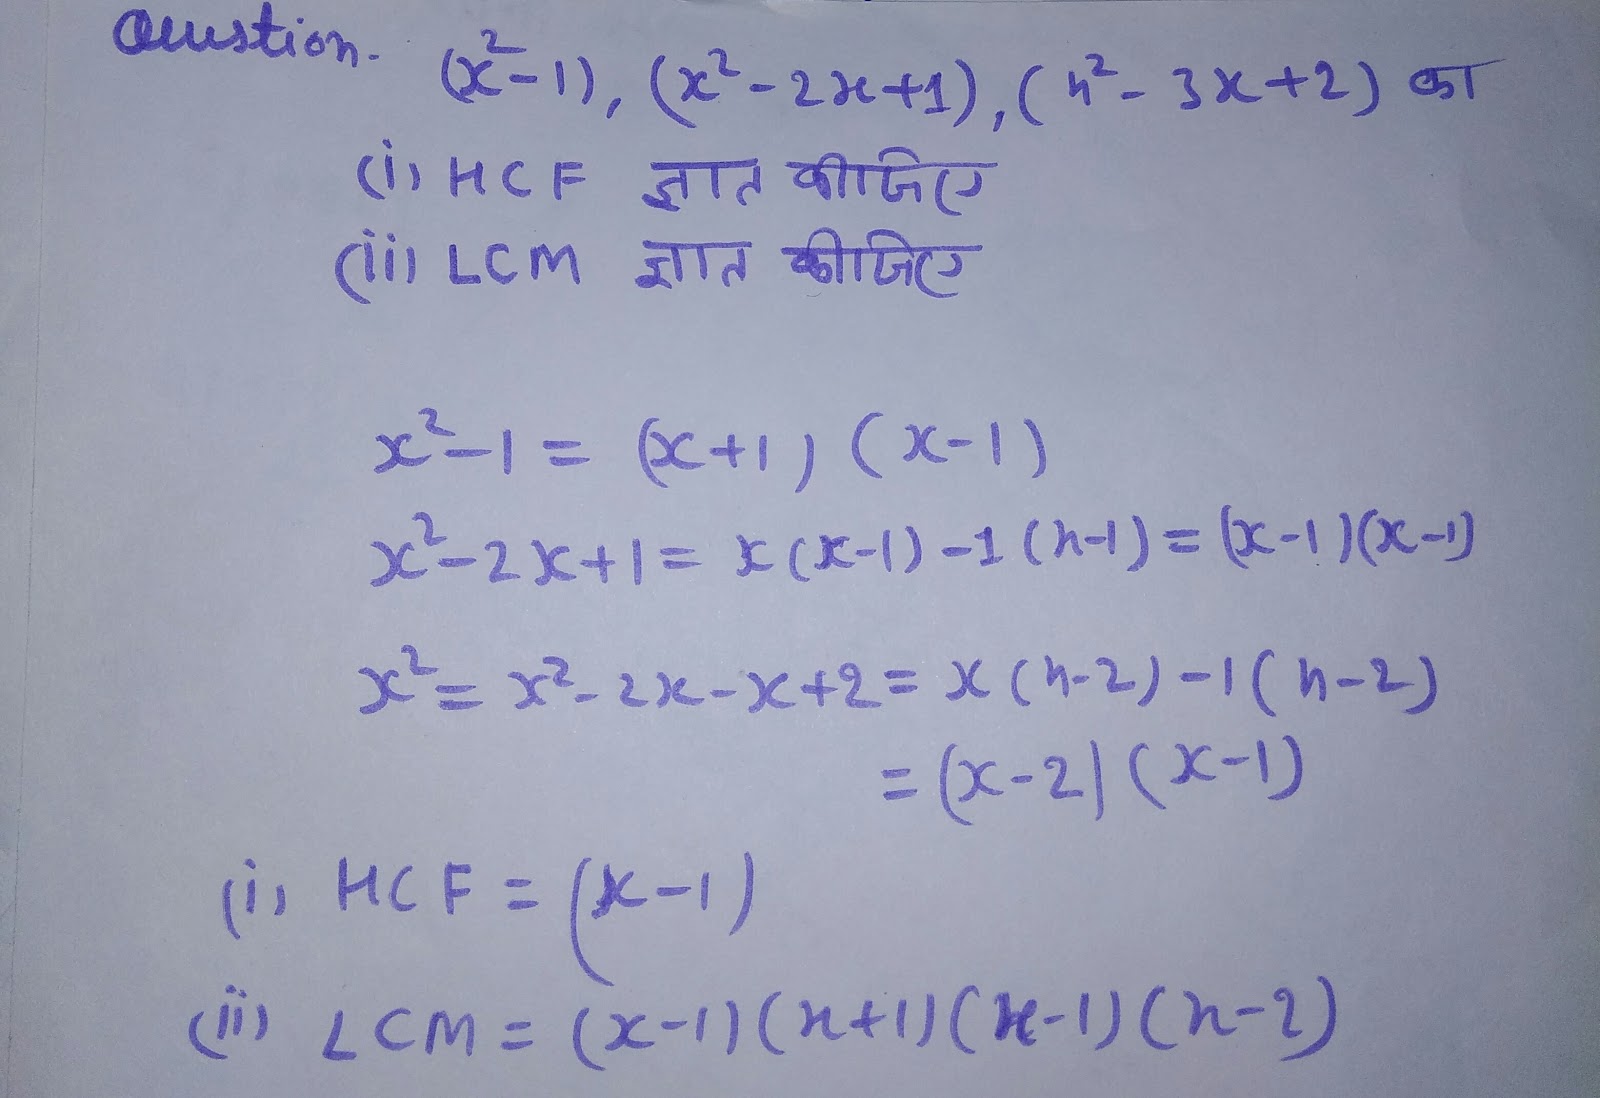 Question. (x²-1), (x²-2x+1), (x²-3x+2) का
(i) HCF ज्ञात कीजिए
(ii) LCM ज्ञात कीजिए
x²-1 = (x+1) (x-1)
x²-2x+1 = x(x-1)-1(x-1) = (x-1)(x-1)
x² = x²-2x-x+2 = x(x-2)-1(x-2)
= (x-2) (x-1)
(i) HCF = (x-1)
(ii) LCM = (x-1)(x+1)(x-1)(x-2)